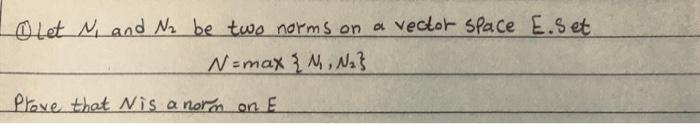 ① Let N₁ and N₂ be two norms on a vector space E. Set
N = max { N₁, N₂ }
Prove that N is a norm on E